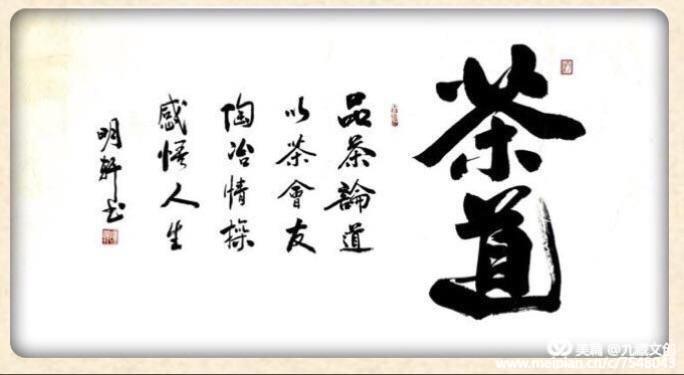 茶道
品茶論道
以茶會友
陶冶情操
感悟人生
明軒书
美篇 @九藏文创
www.meipian.cn/c/7548043